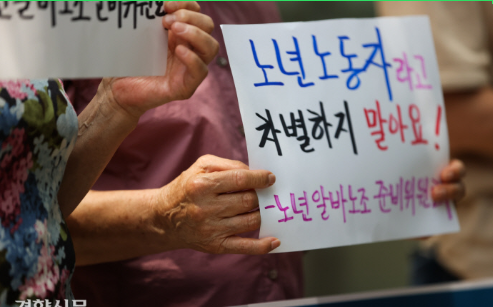 년알바노조 준비위원회
노년노동자라고
차별하지 말아요!
-노년알바노조 준비위원
경향신문